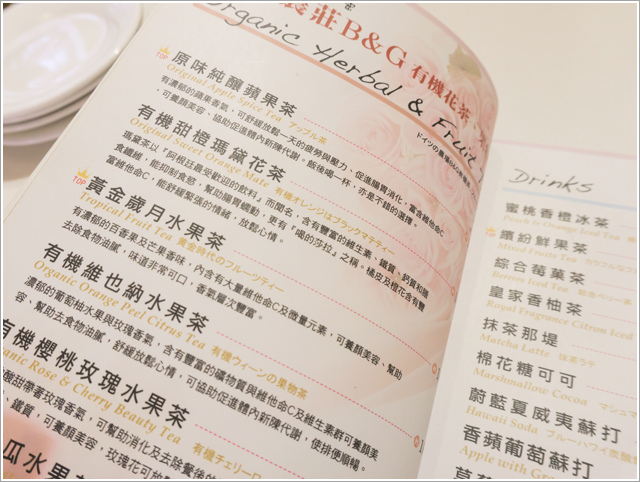 莊B&G 有機花茶
Organic Herbal & Fruit
TOP
原味純釀蘋果茶
Original Apple Spice Tea アップル茶
有濃郁的蘋果香氣，可舒緩放鬆一天的疲勞與壓力、促進腸胃消化，富含維他命C
，可養顏美容、協助促進體內新陳代謝。飯後喝一杯，亦是不錯的選擇。
有機甜橙瑪黛花茶
Original Sweet Orange Mate 有機オレンジはブラックマテティー
瑪黛茶以『阿根廷最受歡迎的飲料』而聞名，含有豐富的維生素、鐵質、鈣質和纖
食纖維，能抑制食慾，幫助腸胃蠕動，更有『喝的莎拉』之稱。橘皮及橙花含有豐
富維他命C，能舒緩緊張的情緒，放鬆心情。
TOP
黃金歲月水果茶
Tropical Fruit Tea 黄金時代のフルーツティー
有濃郁的百香果及芒果香味，內含有大量維他命C及微量元素，可養顏美容、幫助
去除食物油膩，味道非常可口，香氣層次豐富。
有機維也納水果茶
Organic Orange Peel Citrus Tea 有機ウィーンの果物茶
濃郁的葡萄柚水果與玫瑰香氣，含有豐富的礦物質與維他命C及維生素群可養顏美
容，幫助去食物油膩，舒緩放鬆心情，可協助促進體內新陳代謝，使排便順暢。
有機櫻桃玫瑰水果茶
Rose & Cherry Beauty Tea 有機チェリーロ
酸甜帶香玫瑰香氣，可幫助消化及去除餐後的
、鐵質，可養顏美容，玫瑰花可放
瓜水果茶
Drinks
蜜桃香橙冰茶
繽紛鮮果茶
Mixed Fruits Tea
綜合莓菓茶
Berries Iced Tea
皇家香柚茶
Royal Fragrance Citrus Iced
抹茶那堤
Matcha Latte 抹茶ラテ
棉花糖可可
Marshmallow Cocoa
蔚藍夏威夷蘇打
Hawaii Soda ブルーハワイ
香蘋葡萄蘇打
Apple with Gra